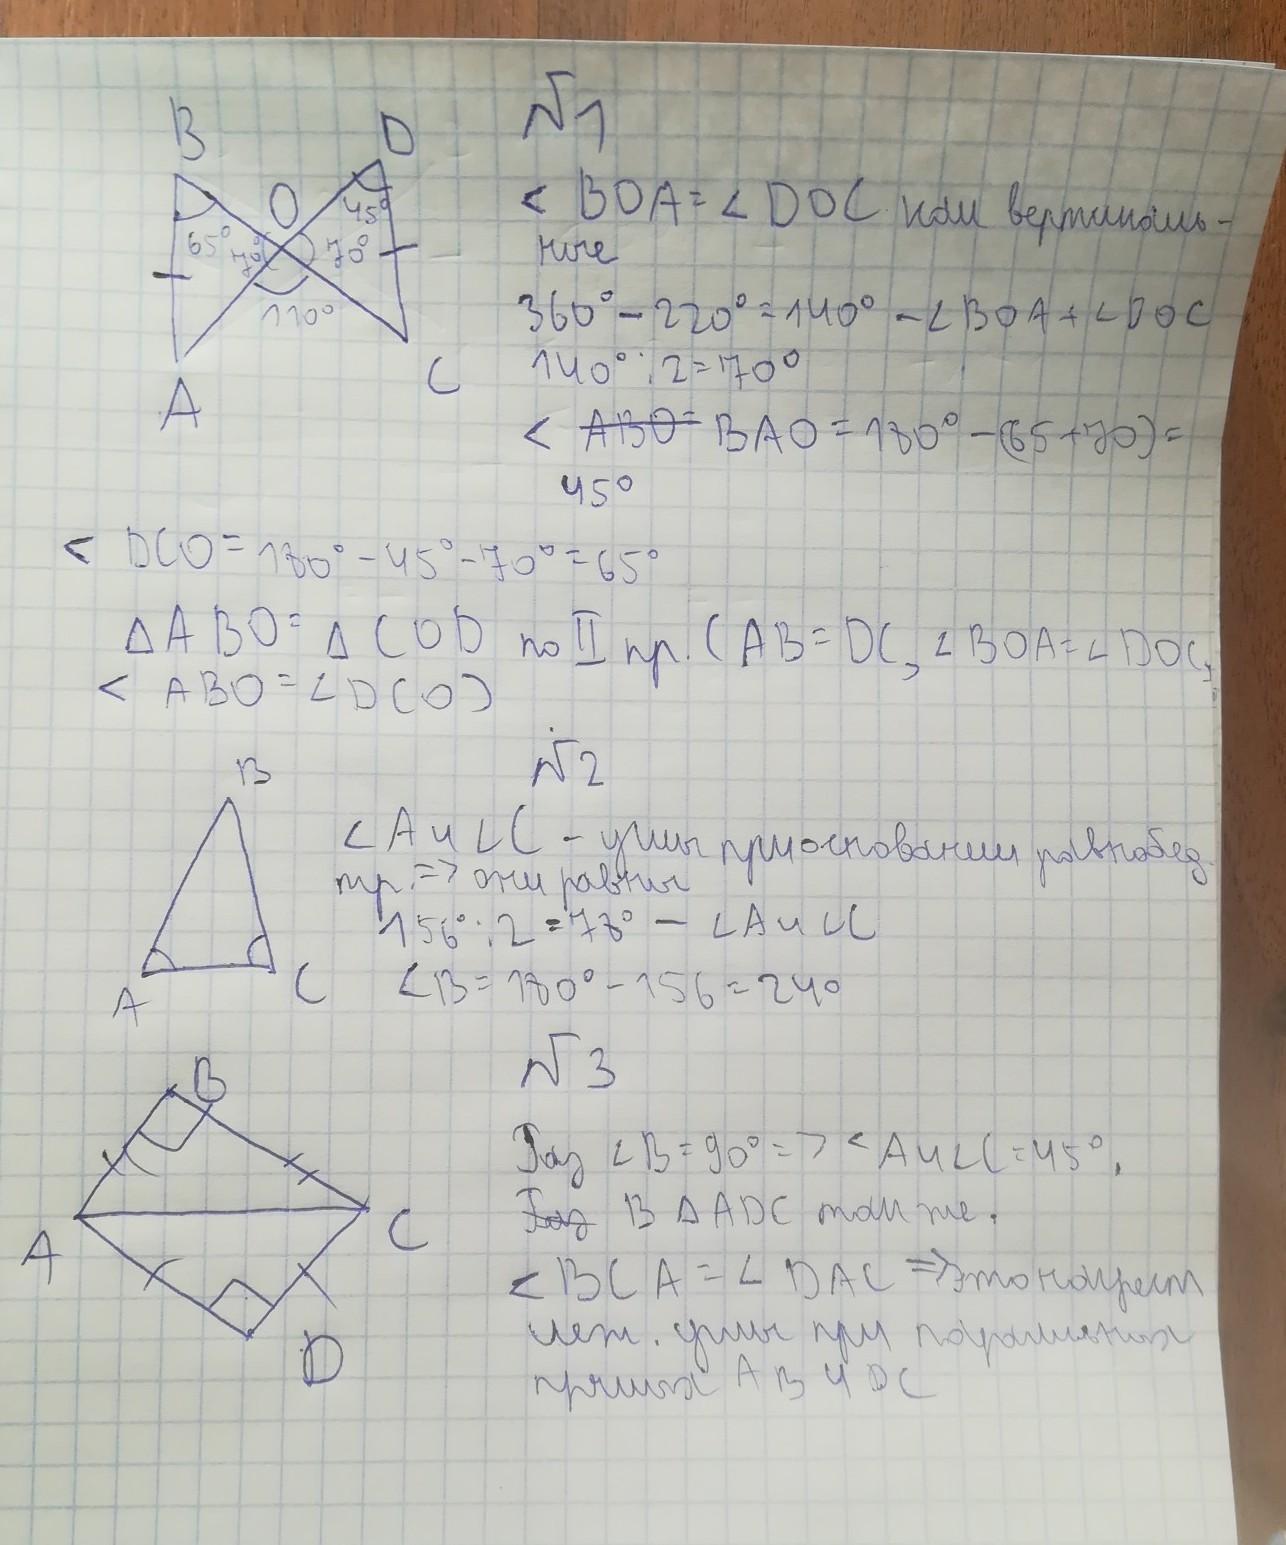 №1
B
D
O
45°
65°
70°
70°
110°
A
C
< BOA = ∠ DOC как вертикаль-
ные
360° - 220° = 140° - ∠BOA + ∠DOC
140° : 2 = 70°
< ABO = BAO = 180° - (65+70) =
45°
< DCO = 180° - 45° - 70° = 65°
Δ ABO = Δ COD по II пр. (AB = DC, ∠BOA = ∠DOC,
< ABO = ∠DCO)
№2
B
A
C
∠A и ∠C - углы при основании равнобед.
тр. => они равны
156° : 2 = 78° - ∠A и ∠C
∠B = 180° - 156 = 24°
№3
B
A
C
D
Раз ∠B = 90° => <A и ∠C = 45°.
Раз В Δ ADC так же.
< BCA = ∠ DAC => это накрест
леж. углы при параллельных
прямых AB и DC